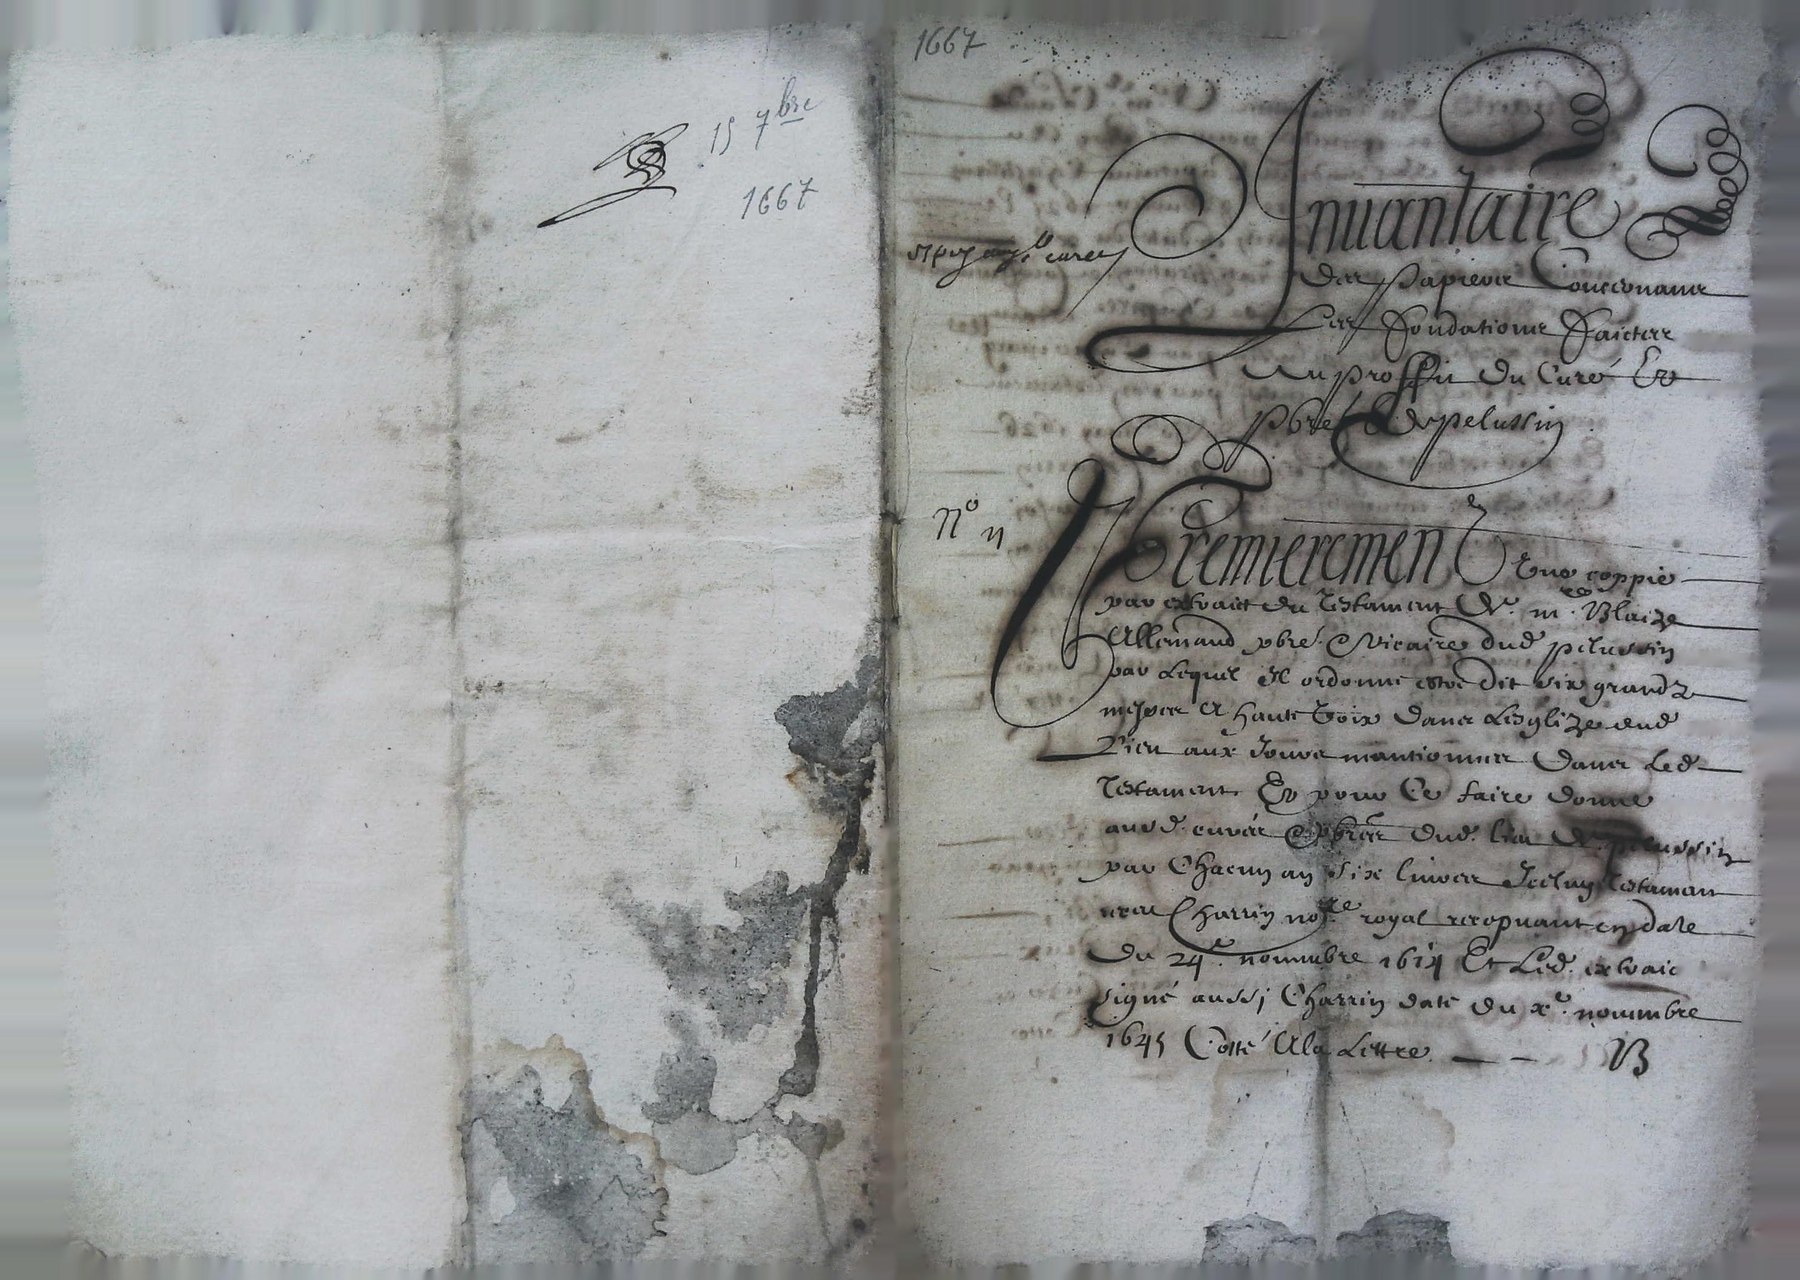 15 7bre
1667
1667
Inuantaire
des papiers Concernans
Les fondations faictes
Au proffit du Curé Et
pbres de pelussin
N° 11
Premierement Une coppie
par extraict du Testament de m.re Blaize
Allemand pbre & vicaire dud pelussin
par Lequel Il ordonne estre dit six grandz
messes A haute voix dans Lesglize dud
Lieu aux Jours mantionnes dans Led
Testament Et pour Ce faire donne
ausd. curés & pbres dud. lieu de pelussin
par Chacun an six liures Iceluy Testamant
receu Charrin no.re royal recepuant en date
du 24e. nouembre 1614 Et Led. extraic
signé aussj Charrin date du xe. nouembre
1645 Cotté A la Lettre B